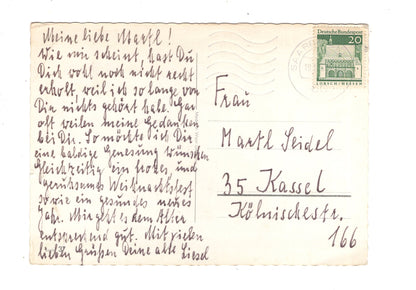 Meine liebe Martl!
Wie mir scheint, hast Du
Dich wohl noch nicht recht
erholt, weil ich so lange von
Dir nichts gehört habe. Gar
oft weilen meine Gedanken
bei Dir. So möchte ich Dir
eine baldige Genesung wünschen
Gleichzeitig ein frohes, und
geruhsames Weihnachtsfest
sowie ein gesundes neues
Jahr. Mir geht es dem Alter
entsprechend gut. Mit vielen
lieben Grüßen Deine alte Liesel
Deutsche Bundespost
20
LORSCH/HESSEN
Frau
Martl Seidel
35 Kassel
Kölnischestr.
166